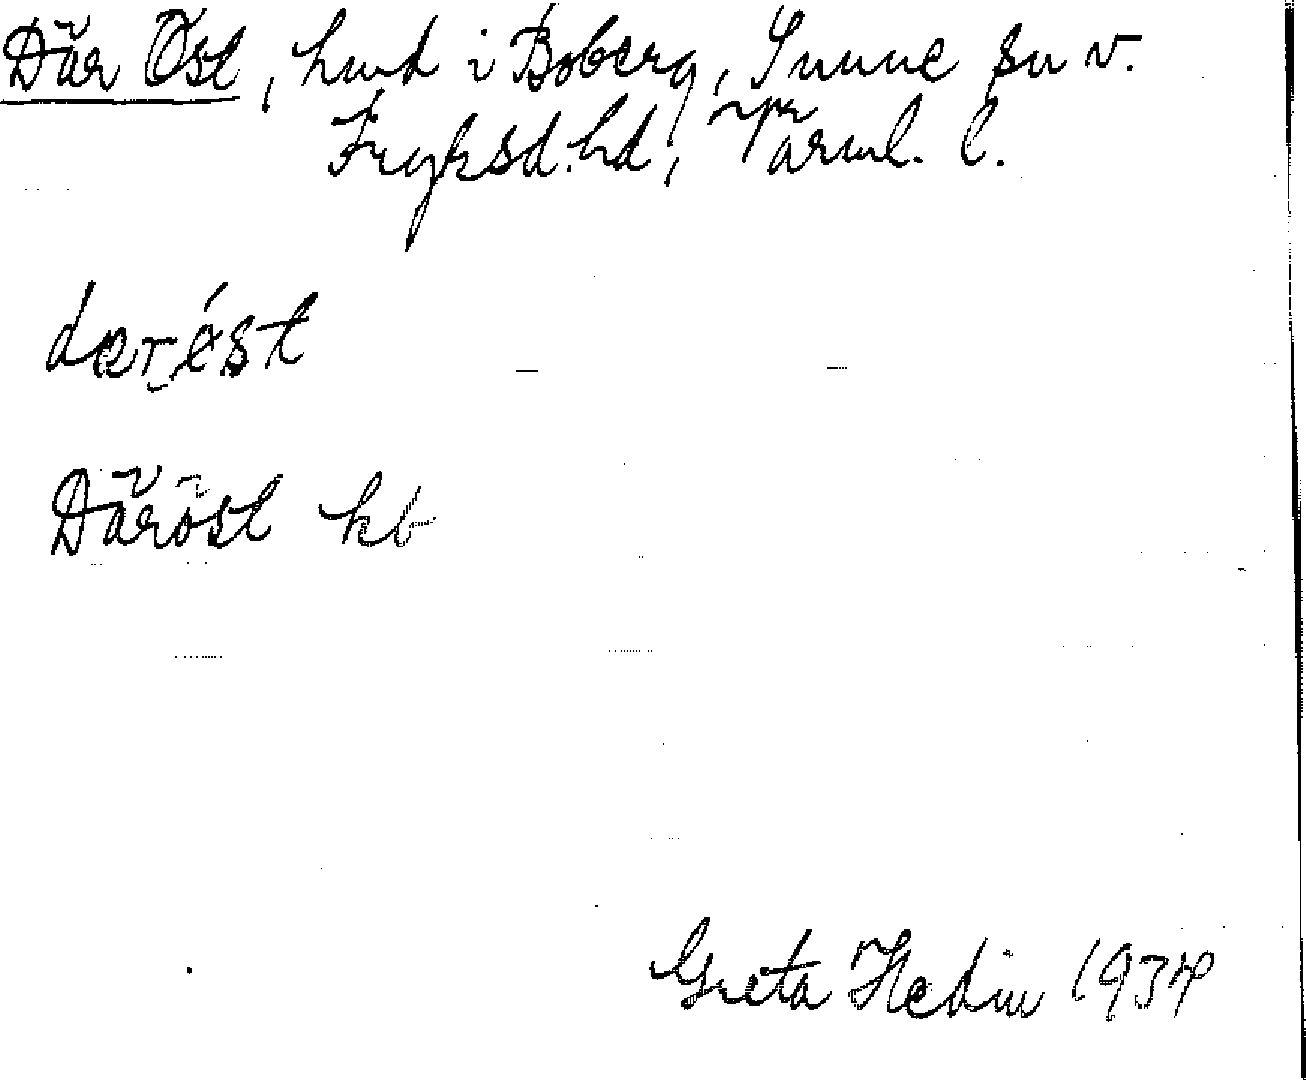 Där Öst, hmd i Boberg, Sunne sn v.
Fryksd. hd, Värml. l.
Däröst kb
Greta Hedin 1934